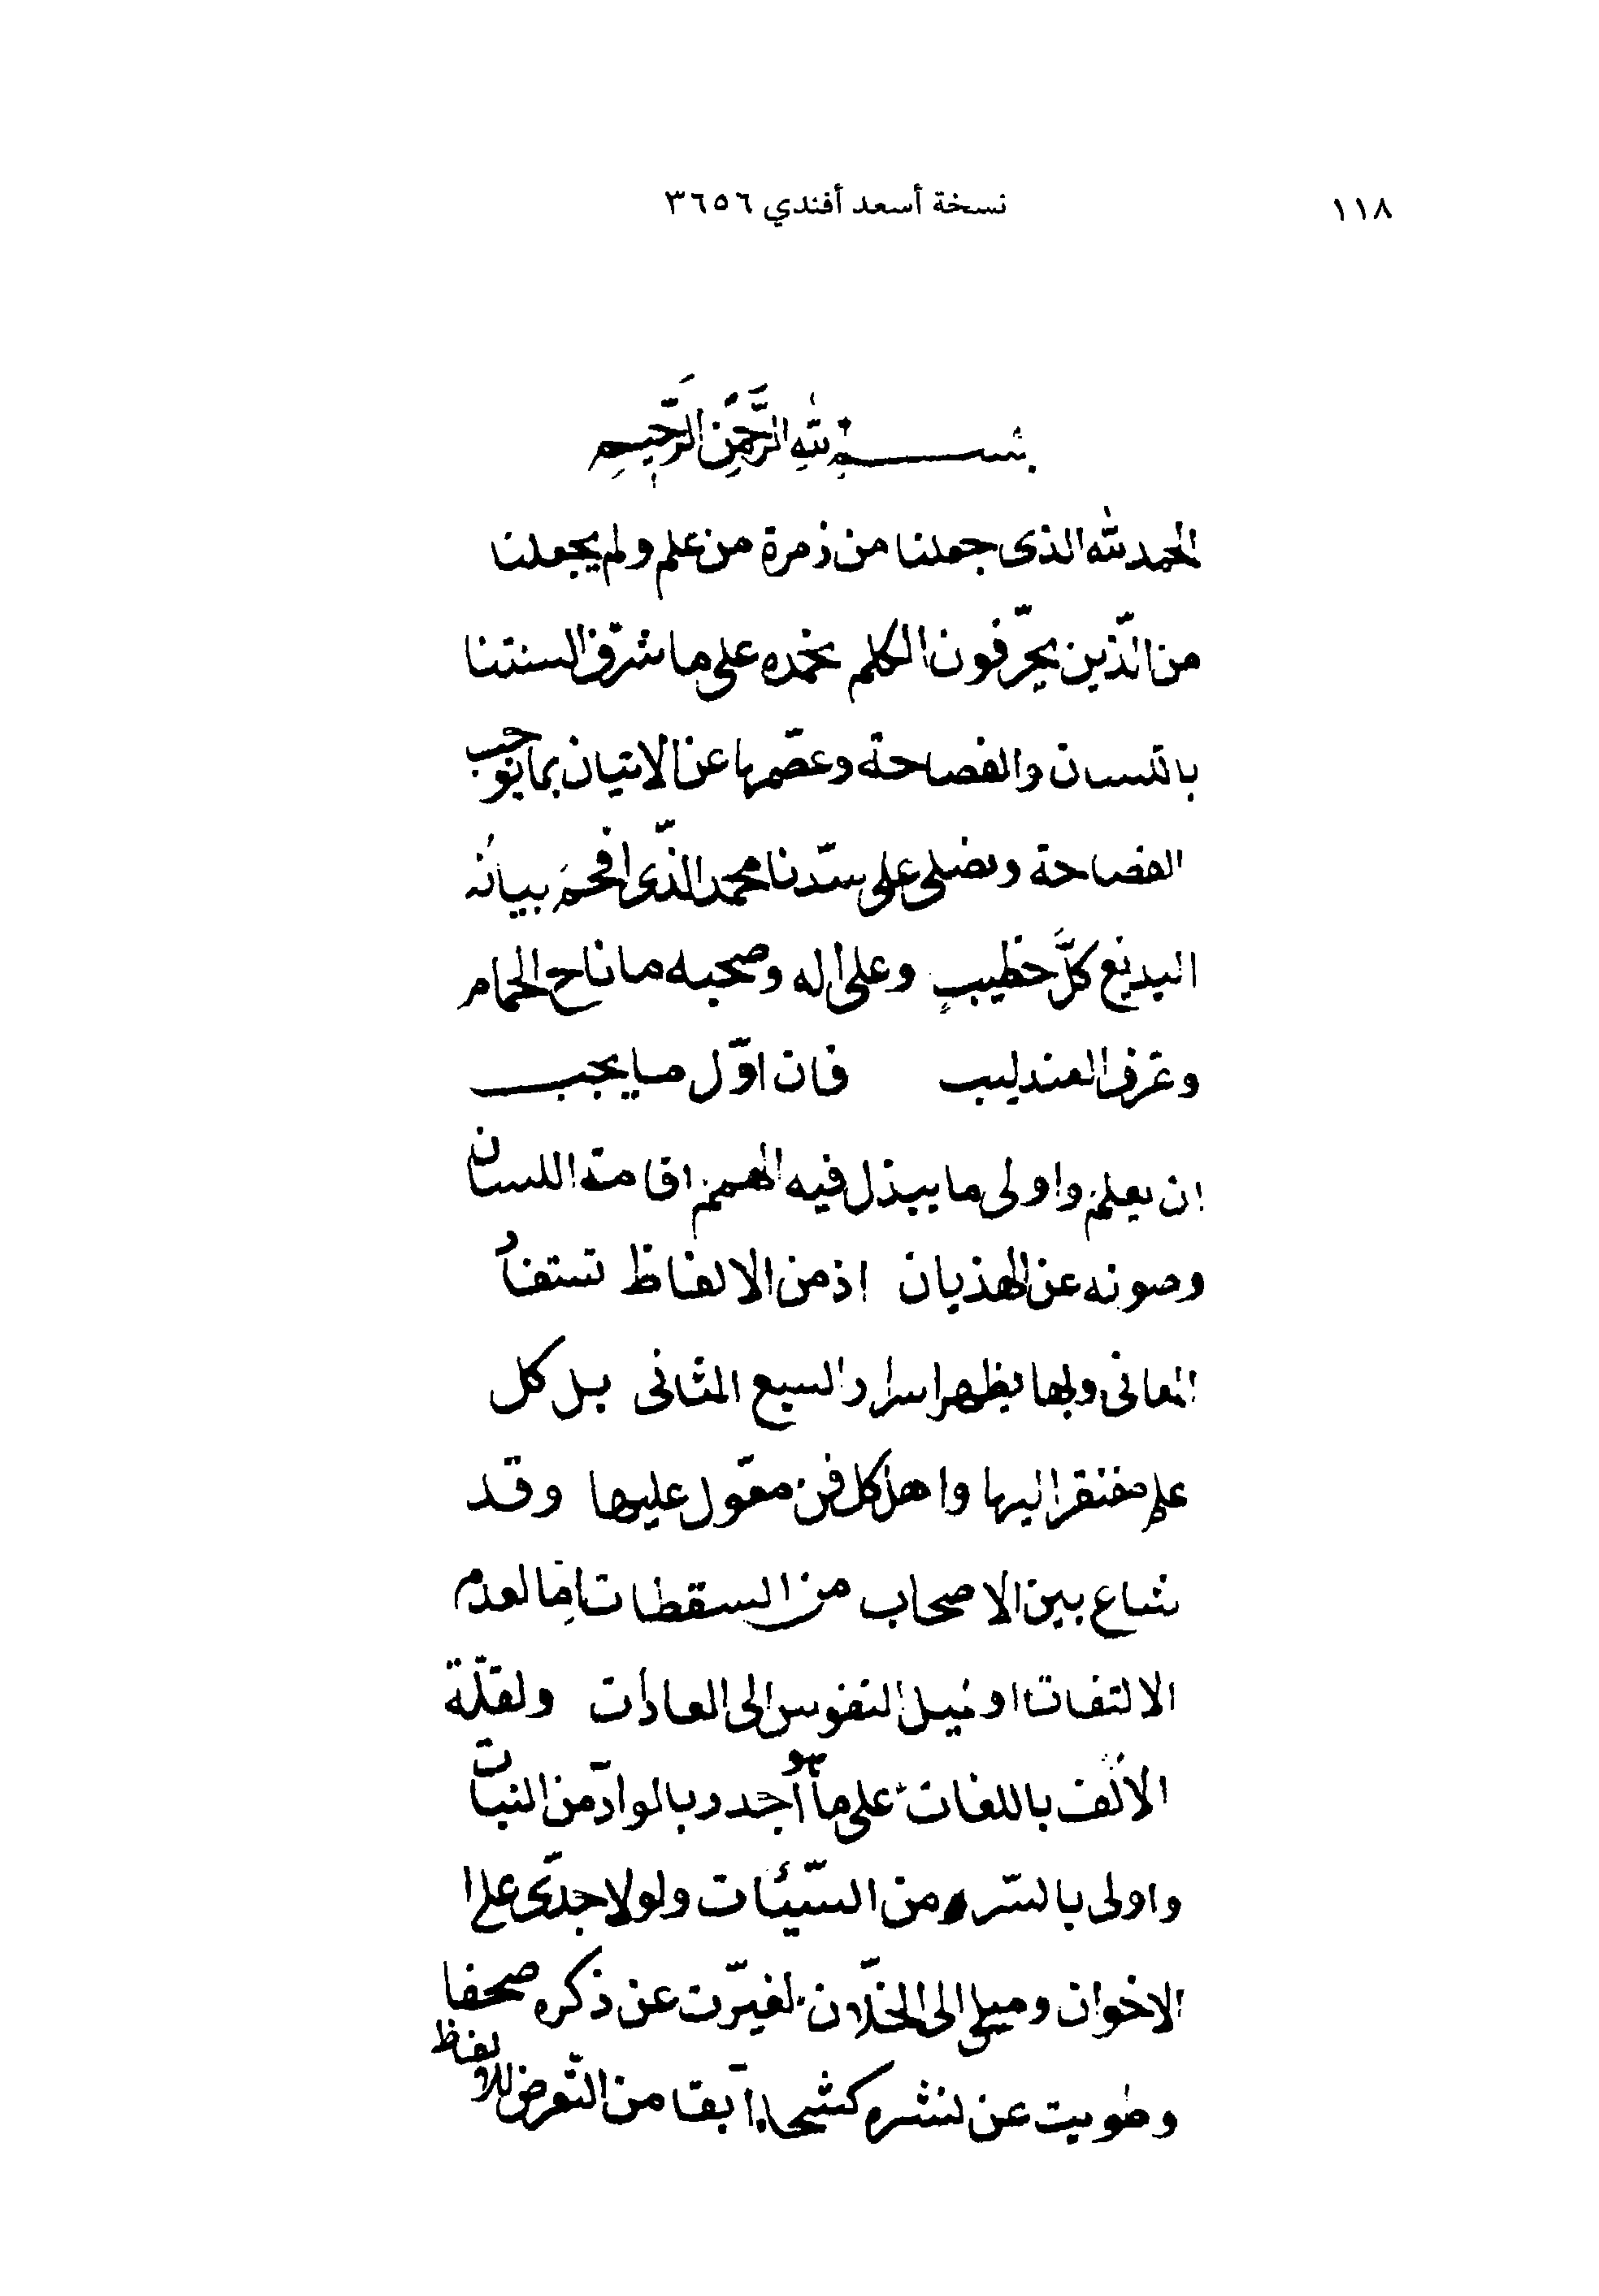 ١١٨
نسخة أسعد أفندي ٣٦٥٦
بسم الله الرَّحمَن الرَّحيم
الحمد لله الذى جعلنا من زمرة من علم ولم يجعلنا
من الّذين يحرّفون الكلم نحمده على ما شرّف السنتنا
باللسان والفصاحة وعصمها عن الاتيان بما يوجب
الفضاحة ونصلى على سيّدنا محمد الذّى افحمَ بيانُه
البديع كلَّ خطيبٍ وعلى اله وصحبه ما ناح الحمام
وغرّد العندليب فان اوّل ما يجب
ان يعلم واولى ما يبذل فيه الهمم اقامة اللسان
وصونه عن الهذيان اذ من الالفاظ تستفاد
المعانى وبها يظهر اسرار السبع المثانى بل كل
علم مفتقر اليها واهل كل فن معوّل عليها وقد
شاع بين الاصحاب من السقطات امّا لعدم
الالتفات او لميل النفوس الى العادات ولقلّة
الالف باللغات على ما هو اجدر بالوادّ من النبات
واولى بالستر من السّيّئات ولولا حدبى على
الاخوان وميلى الى الخلّان لغيّرت عن ذكره صحفا
وطويت عن نشره كشحا آبقا من التّعرض للالفاظ